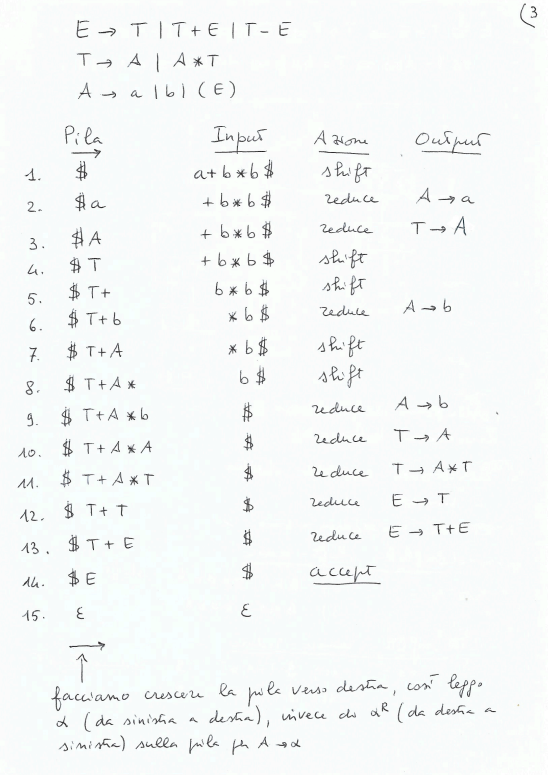 (3
E → T | T + E | T - E
T → A | A * T
A → a | b | (E)
Pila Input Azione Output
1. $ a+b*b$ shift
2. $a +b*b$ reduce A → a
3. $A +b*b$ reduce T → A
4. $T +b*b$ shift
5. $T+ b*b$ shift
6. $T+b *b$ reduce A → b
7. $T+A *b$ shift
8. $T+A* b$ shift
9. $T+A*b $ reduce A → b
10. $T+A*A $ reduce T → A
11. $T+A*T $ reduce T → A*T
12. $T+T $ reduce E → T
13. $T+E $ reduce E → T+E
14. $E $ accept
15. ε ε
facciamo crescere la pila verso destra, così leggo
α (da sinistra a destra), invece di αᴿ (da destra a
sinistra) sulla pila per A → α